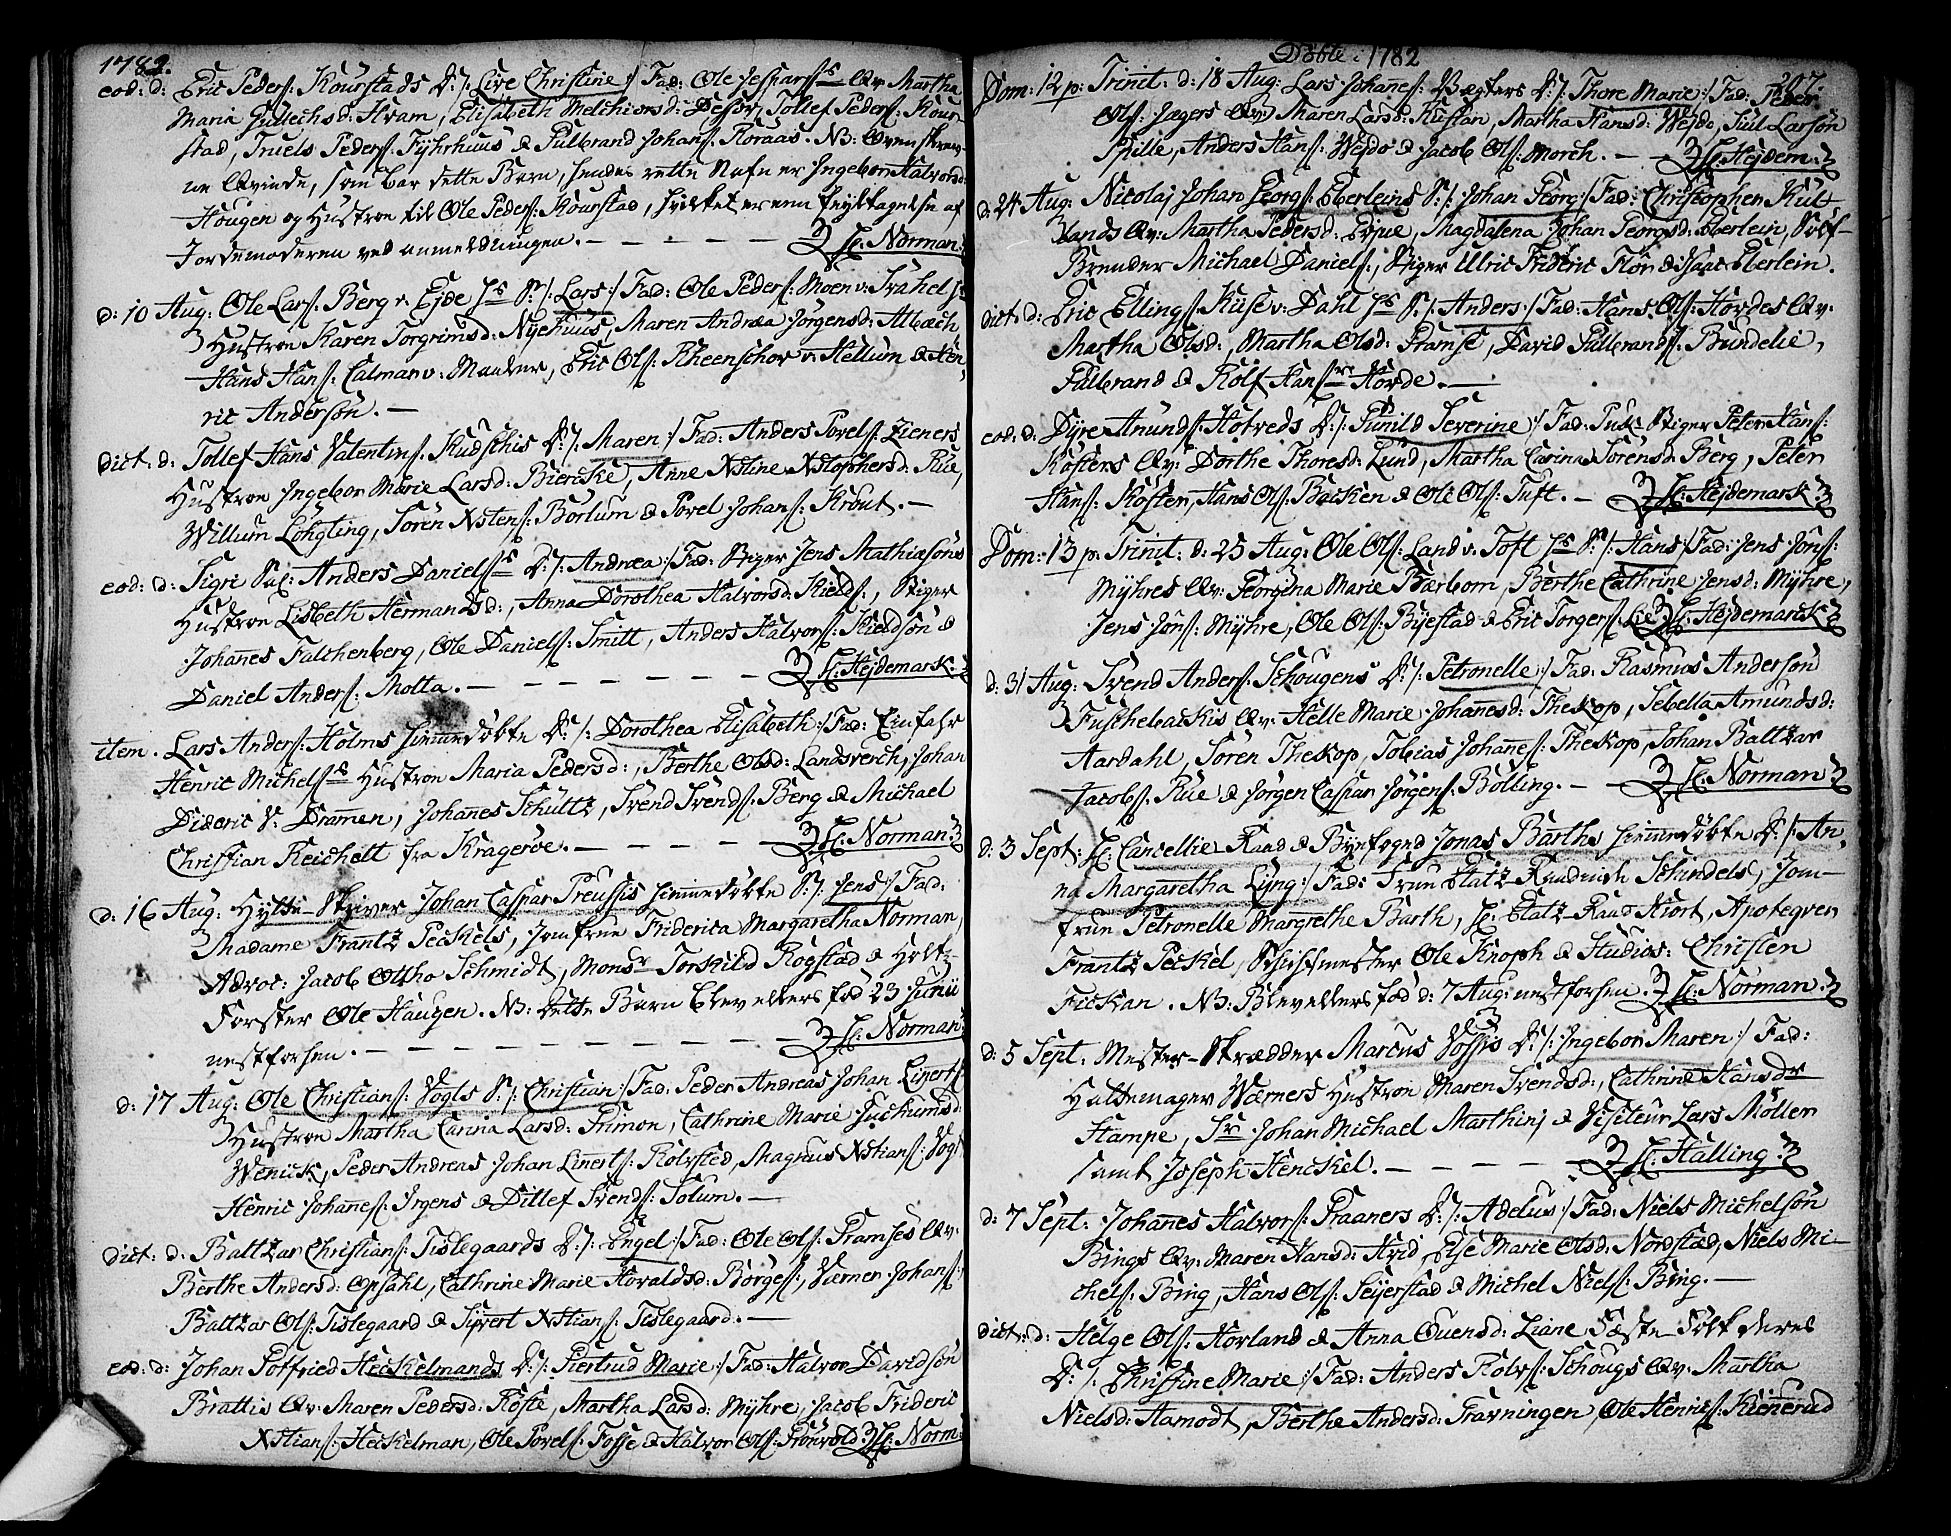 1782.
eod: d: Eric Peders: Kourstads D: /: Live Christine :/ Fad: Ole Jespers:s Qv: Martha
Maria Gullechsd: Hvam, Elisabeth Melchiorsd: Desser, Tollef Peders: Kour-
stad, Truels Peders: Fyhrhuus & Gulbrand Johans: Horaas. NB: Ovenskrev-
ne Qvinde, som bar dette Barn, hendes rette Nafn er Ingebor Halvorsd:
Hougen og Hustroe til Ole Peders: Kourstad, hvilket er een
Jordemoderen ved anmeldningen. — — — — — H: Norman
d: 10 Aug: Ole Lars: Berg v: Ejde Js S: /: Lars :/ Fad: Ole Peders: Moen v:
Hustroe Karen Torgrimsd: Nyehuus, Maren Andrea Jörgensd: Albech
Hans Hans: Calmar v: Maaker, Eric Ols: Rheenschov v: Hellum & Hen-
ric Andersön. —
dict: d: Tollef Hans Valentins: Kudschis D: /: Maren :/ Fad: Anders Povels: Zieners
Hustroe Ingebor Marie Larsd: Biercke, Anne Xstine Xstophersd: Rue,
Willum Löhgting, Sören Xstens: Borlum & Povel Johans: Krout. —
eod: d: Sigri Sal: Anders Daniels:s D: /: Andrea :/ Fad: Stiger Jens Mathiasöns
Hustroe Lisbeth Hermandsd:, Anna Dorothea Halvorsd: Kields:, Stiger
Johannes Falchenberg, Ole Daniels: Smitt, Anders Halvors: Kieldsön &
Daniel Anders: Motta. — — — — — — — H: Hejdemark.
item. Lars Anders: Holms hiemmedöbte D: /: Dorothea Elisabeth :/ Fad: Einfahr
Henric Michels:s Hustroe Maria Pedersd:, Berthe Olsd: Landsverch, Johan
Dideric V: Drammen, Johannes Schultz, Svend Svends: Berg & Michael
Christian Reichelt fra Krageröe. — — — — — H: Norman
d: 16 Aug: Hytte-Skriver Johan Caspar Preussis hiemmedöbte S: /: Jens :/ Fad:
Madame Frantz Peckels, Jomfrue Friderica Margaretha Norman,
Advoc: Jacob Ottho Schmidt, Monsr Torskild Rogstad & Holtz-
Forster Ole Haugen. NB: Dette Barn blev ellers föd 23 Junii
nestforhen. — — — — — — — — — H: Norman
d: 17 Aug: Ole Christians: Vogts S: /: Christian :/ Fad: Peder Andreas Johan Linerts:
Hustroe Martha Carina Larsd: Grimon, Cathrine Marie Guckumsd:
Wenick, Peder Andreas Johan Linerts: Rolvsted, Magnus Xstians: Vogt
Henric Johannes: Irgens & Ditlef Svends: Solum. —
dict: d: Baltzar Christians: Tislegaards D: /: Engel :/ Fad: Ole Ols: Gramses Qv:
Berthe Andersd: Opsahl, Cathrine Marie Hovaldsd: Borges:, Verner Johans:
Baltzar Ols: Tislegaard & Sivert Xstians: Tislegaard. —
eod: d: Johan Gotfried Heckelmands D: /: Giertrud Marie :/ Fad: Halvor Davidsön
Brattis Qv: Maren Pedersd: Foste, Martha Larsd: Myhre, Jacob Frideric
Xstians: Heckelman, Ole Povels: Fosse & Halvor Ols: Grönvold. H: Norm-
Döbte: 1782
207.
Dom: 12 p: Trinit: d: 18 Aug: Lars Johannes: Vægters D: /: Thore Marie :/ Fad: Peder
Ols: Jægers Qv: Maren Larsd: Kustan, Martha Hansd: Wejdo, Juul Larsön
Spille, Anders Hans: Wejdo & Jacob Ols: Morch. — H: Hejdem:
d: 24 Aug: Nicolaj Johan Georgs: Eberleins S: /: Johan Georg :/ Fad: Christopher Kul-
lands Qv: Martha Pedersd: Espue, Magdalena Johan Georgsd: Eberlein, Sölf-
Brender Michael Daniels:, Stiger Ulric Frideric Flör & Isaac Eberlein.
dict: d: Eric Ellings: Kuse v: Dahl Js S: /: Anders :/ Fad: Hans Ols: Hordes Qv:
Martha Olsd:, Martha Olsd: Gramse, David Gulbrands: Bundelie,
Gulbrand & Rolf Hans:r Hörde. —
eod: d: Dyre Amunds: Hotveds D: /: Gunild Severine :/ Fad: Stiger Peter Hans:
Kösters Qv: Dorthe Thoresd: Lund, Martha Carina Sörensd: Berg, Peter
Hans: Köster, Hans Ols: Backen & Ole Ols: Tuft. — H: Hejdemark
Dom: 13 p: Trinit: d: 25 Aug: Ole Ols: Land v: Toft Js S: /: Hans :/ Fad: Jens Jons:
Myhres Qv: Georgina Marie Bærbom, Berthe Cathrine Jensd: Myhre,
Jens Jons: Myhre, Ole Ols: Byestad & Eric Torgers: Lie. H: Hejdemarck
d: 31 Aug: Svend Anders: Schougens D: /: Petronelle :/ Fad: Rasmus Andersön
Fuschebackis Qv: Helle Marie Johannesd: Theskop, Sebella Amundsd:
Aardahl, Sören Theskop, Tobias Johannes: Theskop, Johan Baltzar
Jacobs: Rue & Jörgen Caspar Jörgens: Bölling. — H: Norman
d: 3 Sept: H: Cancellie Raad & Byefogd Jonas Barths hiemmedöbte D: /: An-
na Margaretha Lyng :/ Fad: Frue Etatz-Raadinde Schindels, Jom-
frue Petronelle Margrethe Barth, H: Etatz-Raad Hiort, Apotequer
Frantz Peckel, Schichtmester Ole Knoph & Studios: Christen
Fickan. NB: Blev ellers föd d: 7 Aug: nestforhen. H: Norman
d: 5 Sept: Mester-Skrædder Marcus Vossis D: /: Ingebor Maren :/ Fad:
Hattemager Wærners Hustroe Maren Svendsd:, Cathrine Hansdr
Hampe, Sr Johan Michael Marthinj & Visiteur Lars Möller
samt Joseph Henckel. — — — — — H: Halling
d: 7 Sept: Johannes Halvors: Praaners D: /: Adelus :/ Fad: Niels Michelsön
Bings Qv: Maren Hansd: Hvid, Else Marie Olsd: Nordstad, Niels Mi-
chels: Bing, Hans Ols: Seyerstad & Michel Niels: Bing. —
dict: d: Helge Ols: Horland & Anna Ouensd: Liane Fæste-Folk deres
D: /: Christine Marie :/ Fad: Anders Rolvs: Schougs Qv: Martha
Nielsd: Aamodt, Berthe Andersd: Gravningen, Ole Henrics: Kiennerud